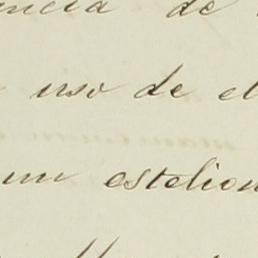 ncia de
uso de el
un estelion